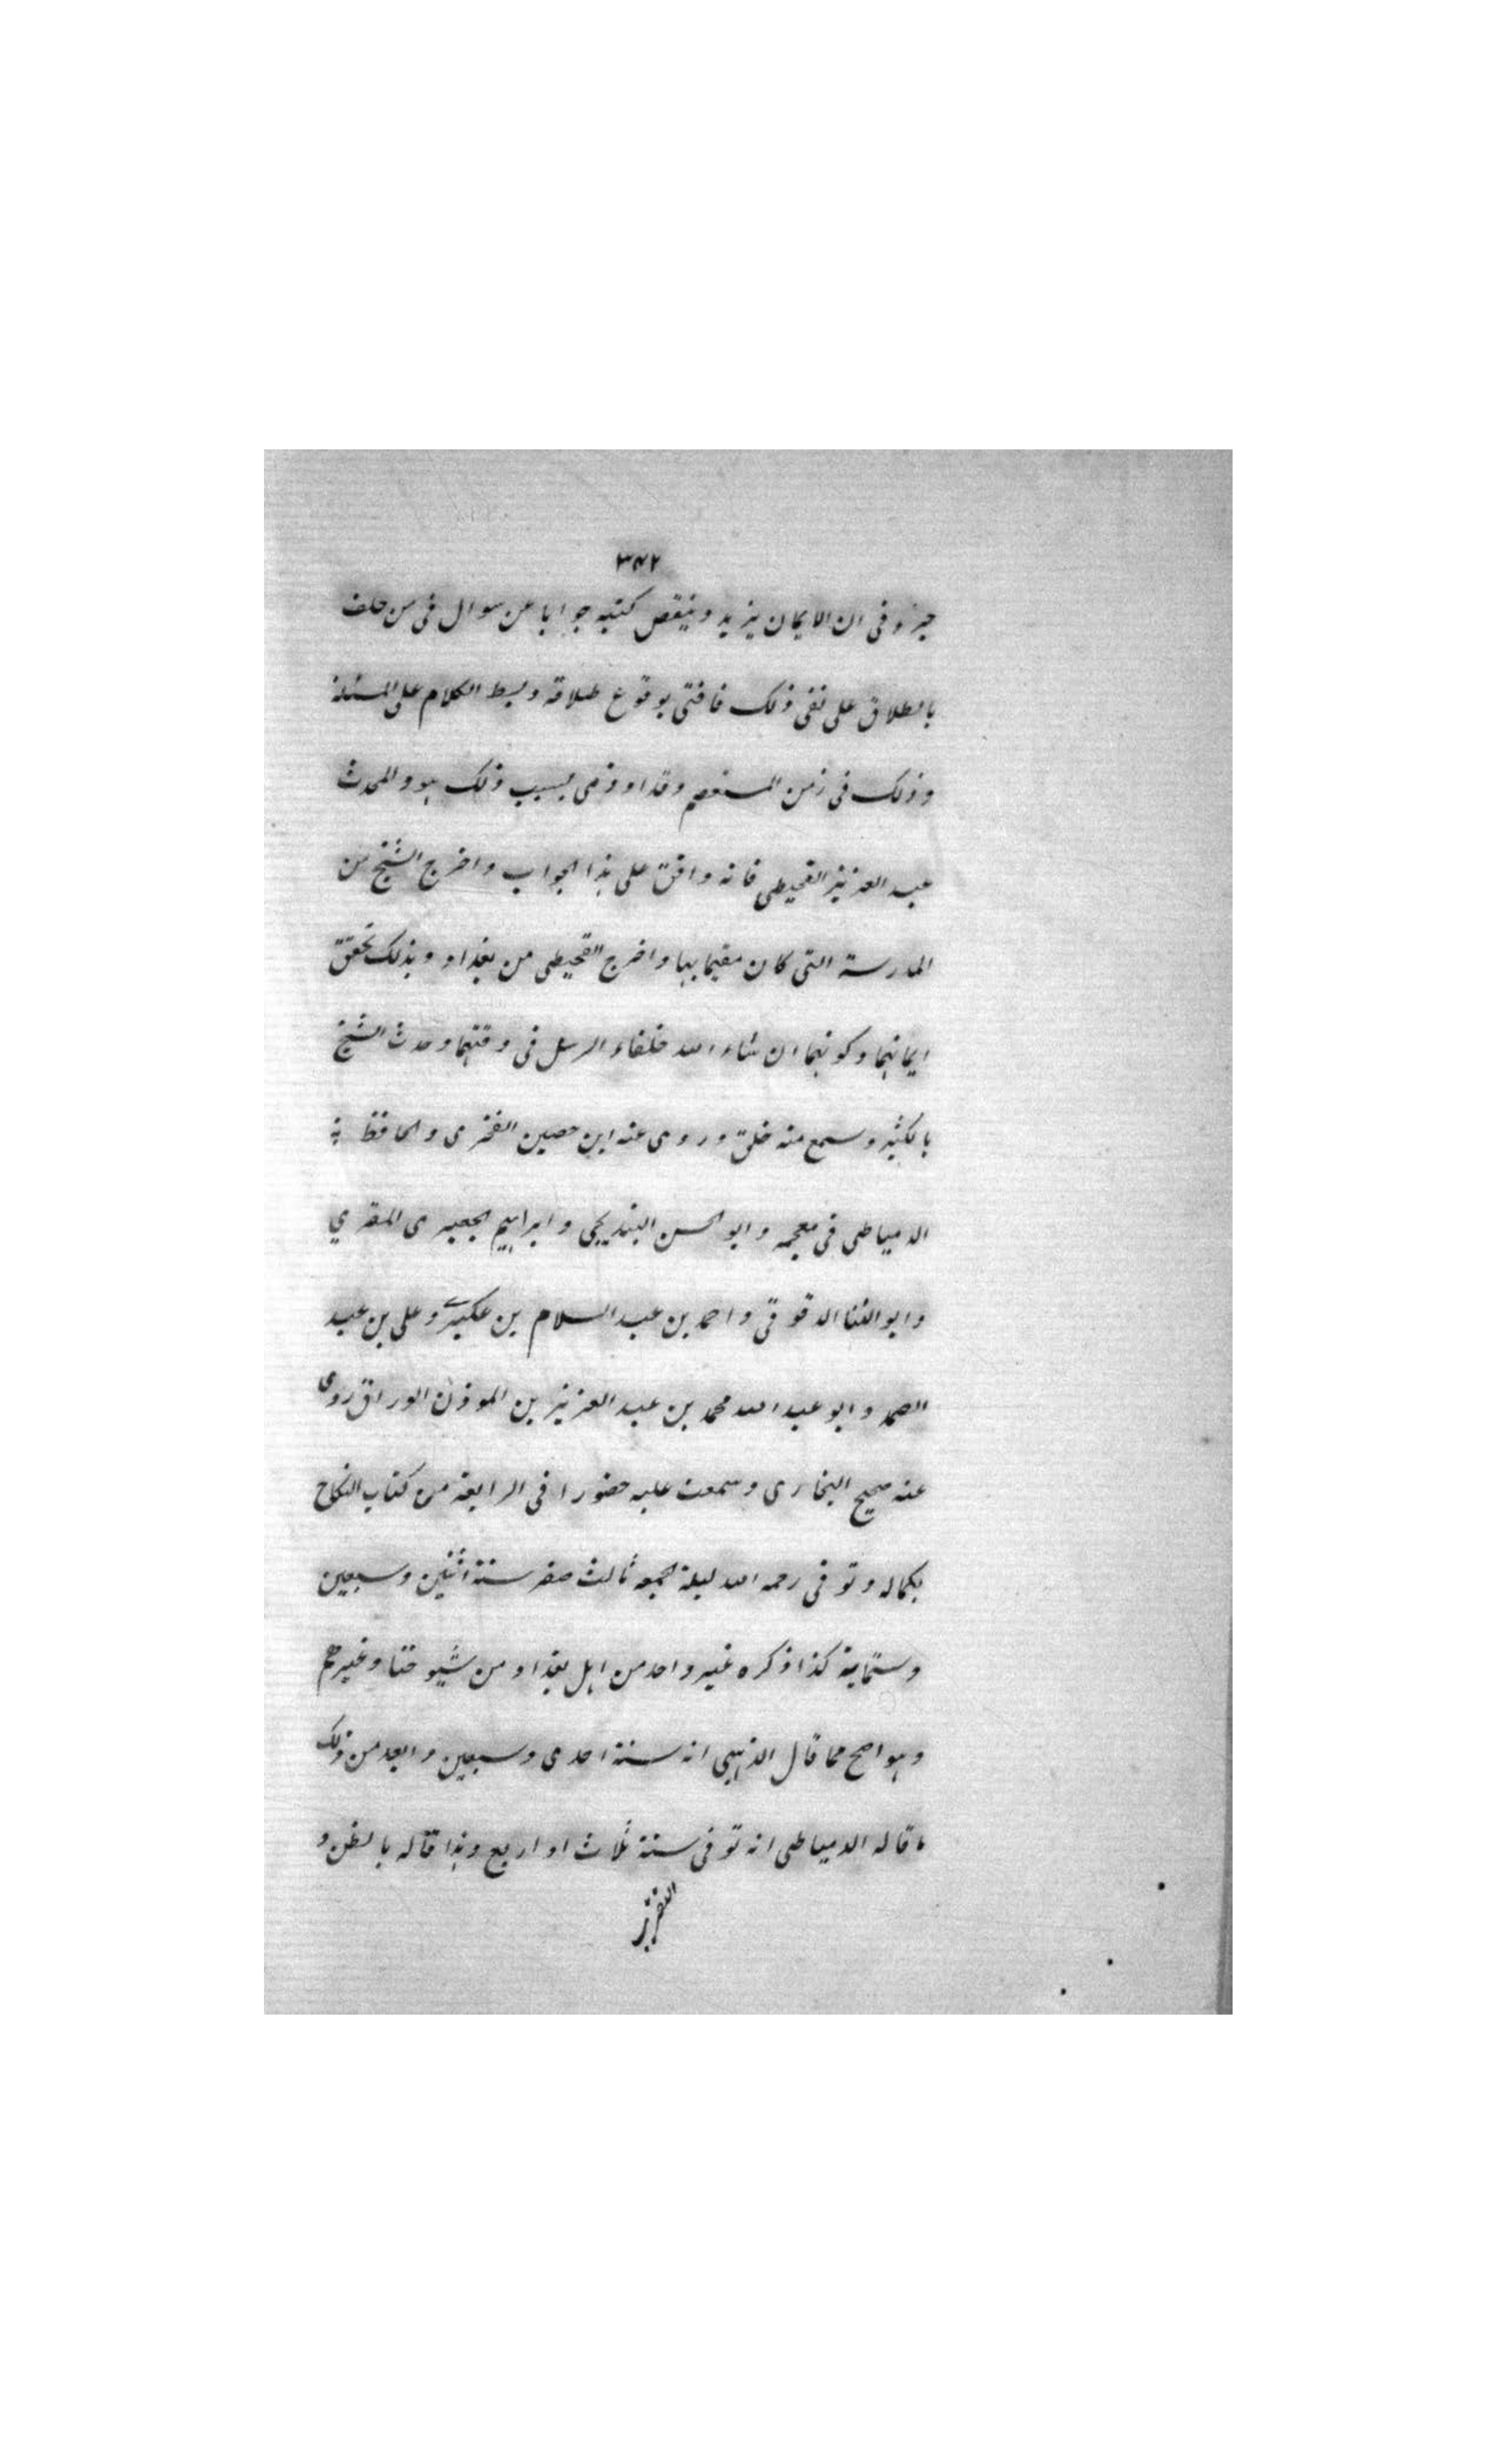 ٣٤٢
جزء فى ان الايمان يزيد وينقص كتبه جوابا عن سوال فى من حلف
بالطلاق على نفى ذلك فافتى بوقوع طلاقه وبسط الكلام على المسئلة
وذلك فى زمن المستعصم وقد اوذى بسبب ذلك هو والمحدث
عبد العزيز القحيطى فانه وافق على هذا الجواب واخرج الشيخ من
المدرسة التى كان مقيما بها واخرج القحيطى من بغداد وبذلك تحقق
ايمانهما وكونهما ان شاء الله خلفاء الرسل فى وقتهما وحدث الشيخ
بالكثير وسمع منه خلق وروى عنه ابن حصين الفخرى والحافظ
الدمياطى فى معجمه وابو الحسن البندنيجى وابراهيم الجعبرى المقري
وابو الثنا الدقوقى واحمد بن عبد السلام بن عكبر وعلى بن عبد
الصمد وابو عبد الله محمد بن عبد العزيز بن الموذن الوراق روى
عنه صحيح البخارى وسمعت عليه حضورا فى الرابعة من كتاب النكاح
بكماله وتوفى رحمه الله ليلة الجمعه ثالث صفر سنة اثنين وسبعين
وستماية كذا ذكره غير واحد من اهل بغداد من شيوخنا وغيرهم
وهو اصح مما قال الذهبى انه سنة احدى وسبعين وابعد من ذلك
ما قاله الدمياطى انه توفى سنة ثلاث او اربع وهذا قاله بالظن و